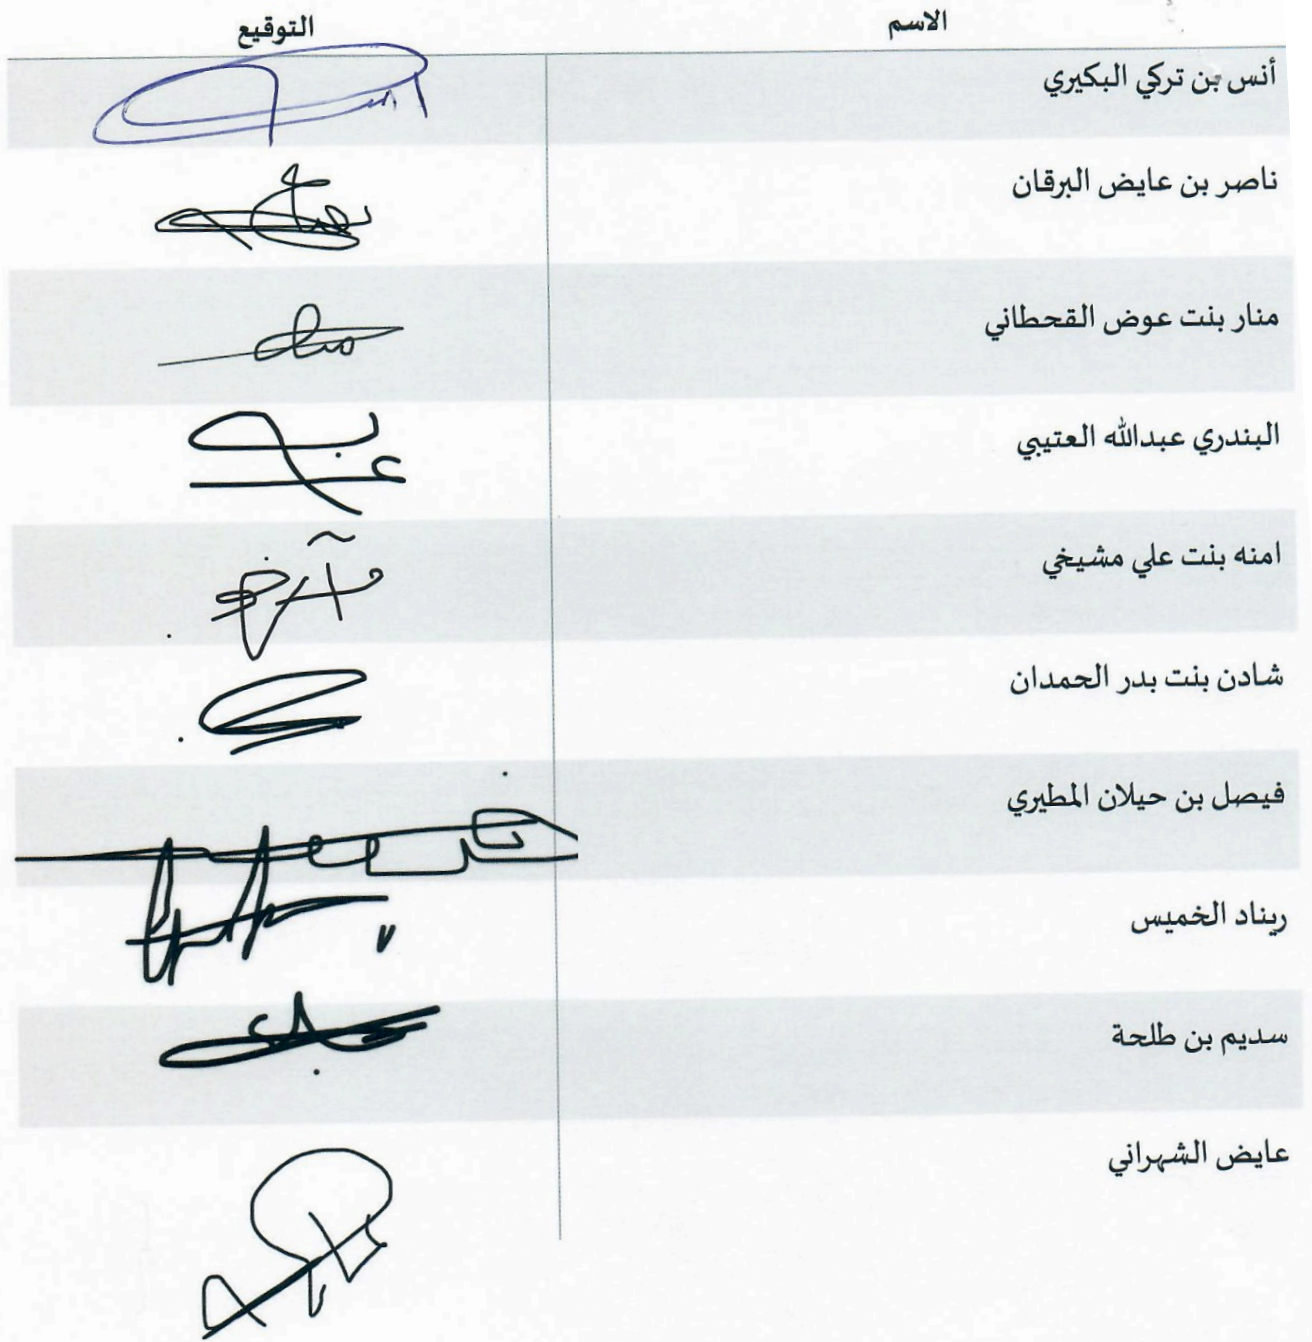 الاسم التوقيع
أنس بن تركي البكيري
ناصر بن عايض البرقان
منار بنت عوض القحطاني
البندري عبدالله العتيبي
امنه بنت علي مشيخي
شادن بنت بدر الحمدان
فيصل بن حيلان المطيري
ريناد الخميس
سديم بن طلحة
عايض الشهراني